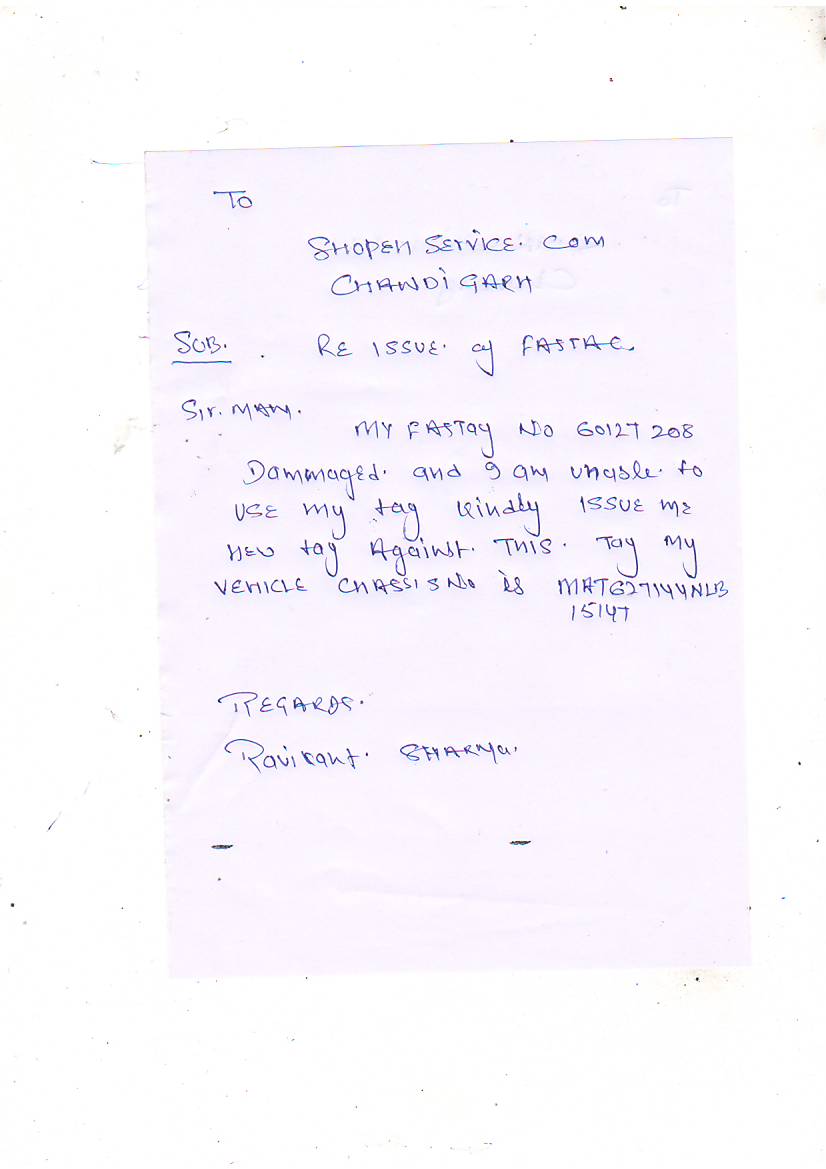 To
SHOPEN SERVICE. COM
CHANDIGARH
SUB. . RE ISSUE. of FASTAG
Sir. MAM.
MY FASTag NO 60127 208
Dammaged. and I am unable. to
USE my tag kindly ISSUE me
NEW tag Against. THIS. Tag My
VEHICLE CHASSIS No is MAT627144NLB
15147
REGARDS.
Ravikant. SHARMa.